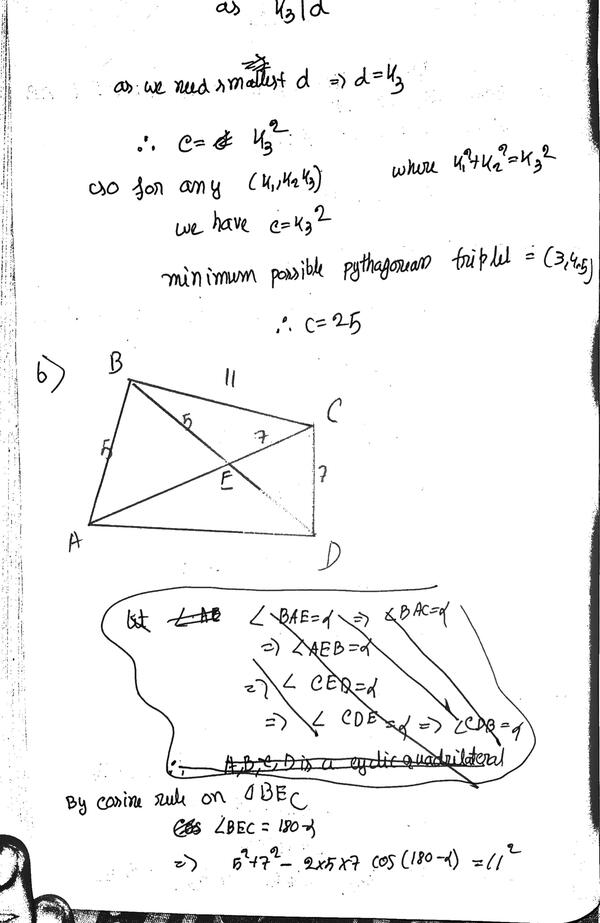 as K₃|d
as we need smallest d ⇒ d=K₃
∴ c= K₃²
so for any (K₁,K₂K₃) where K₁²+K₂²=K₃²
we have c=K₃²
minimum possible pythagorean triplet = (3,4,5)
∴ c=25
6)
B
11
C
5
5
7
E
7
A
D
let ∠AE ∠ BAE=α ⇒ ∠BAC=α
⇒ ∠AEB=α
⇒ ∠ CED=α
⇒ ∠ CDE=α ⇒ ∠CDB=α
∴ A,B,C,D is a cyclic quadrilateral
By cosine rule on ΔBEC
Cos ∠BEC = 180-α
⇒ 5²+7²- 2x5x7 cos(180-α) =11²